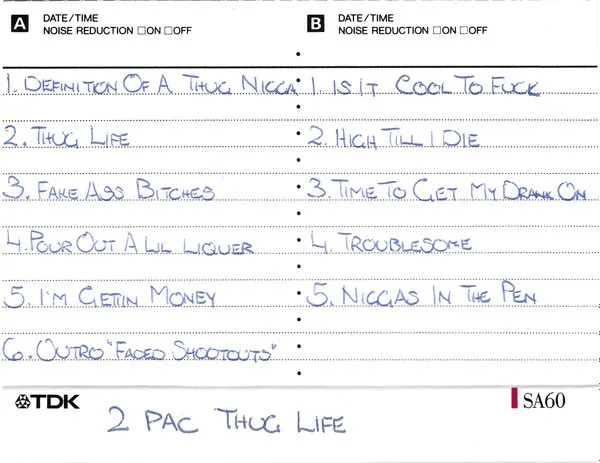 A DATE/TIME
NOISE REDUCTION □ON □OFF
1. DEFINITION OF A THUG NIGGA
2. THUG LIFE
3. FAKE ASS BITCHES
4. POUR OUT A LIL LIQUER
5. I'M GETIN MONEY
6. OUTRO "FADED SHOOTOUTS"
B DATE/TIME
NOISE REDUCTION □ON □OFF
1. IS IT COOL TO FUCK
2. HIGH TILL I DIE
3. TIME TO GET MY DRANK ON
4. TROUBLESOME
5. NIGGAS IN THE PEN
TDK
SA60
2 PAC THUG LIFE